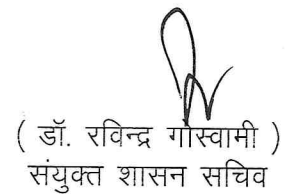 ( डॉ. रविन्द्र गोस्वामी )
संयुक्त शासन सचिव